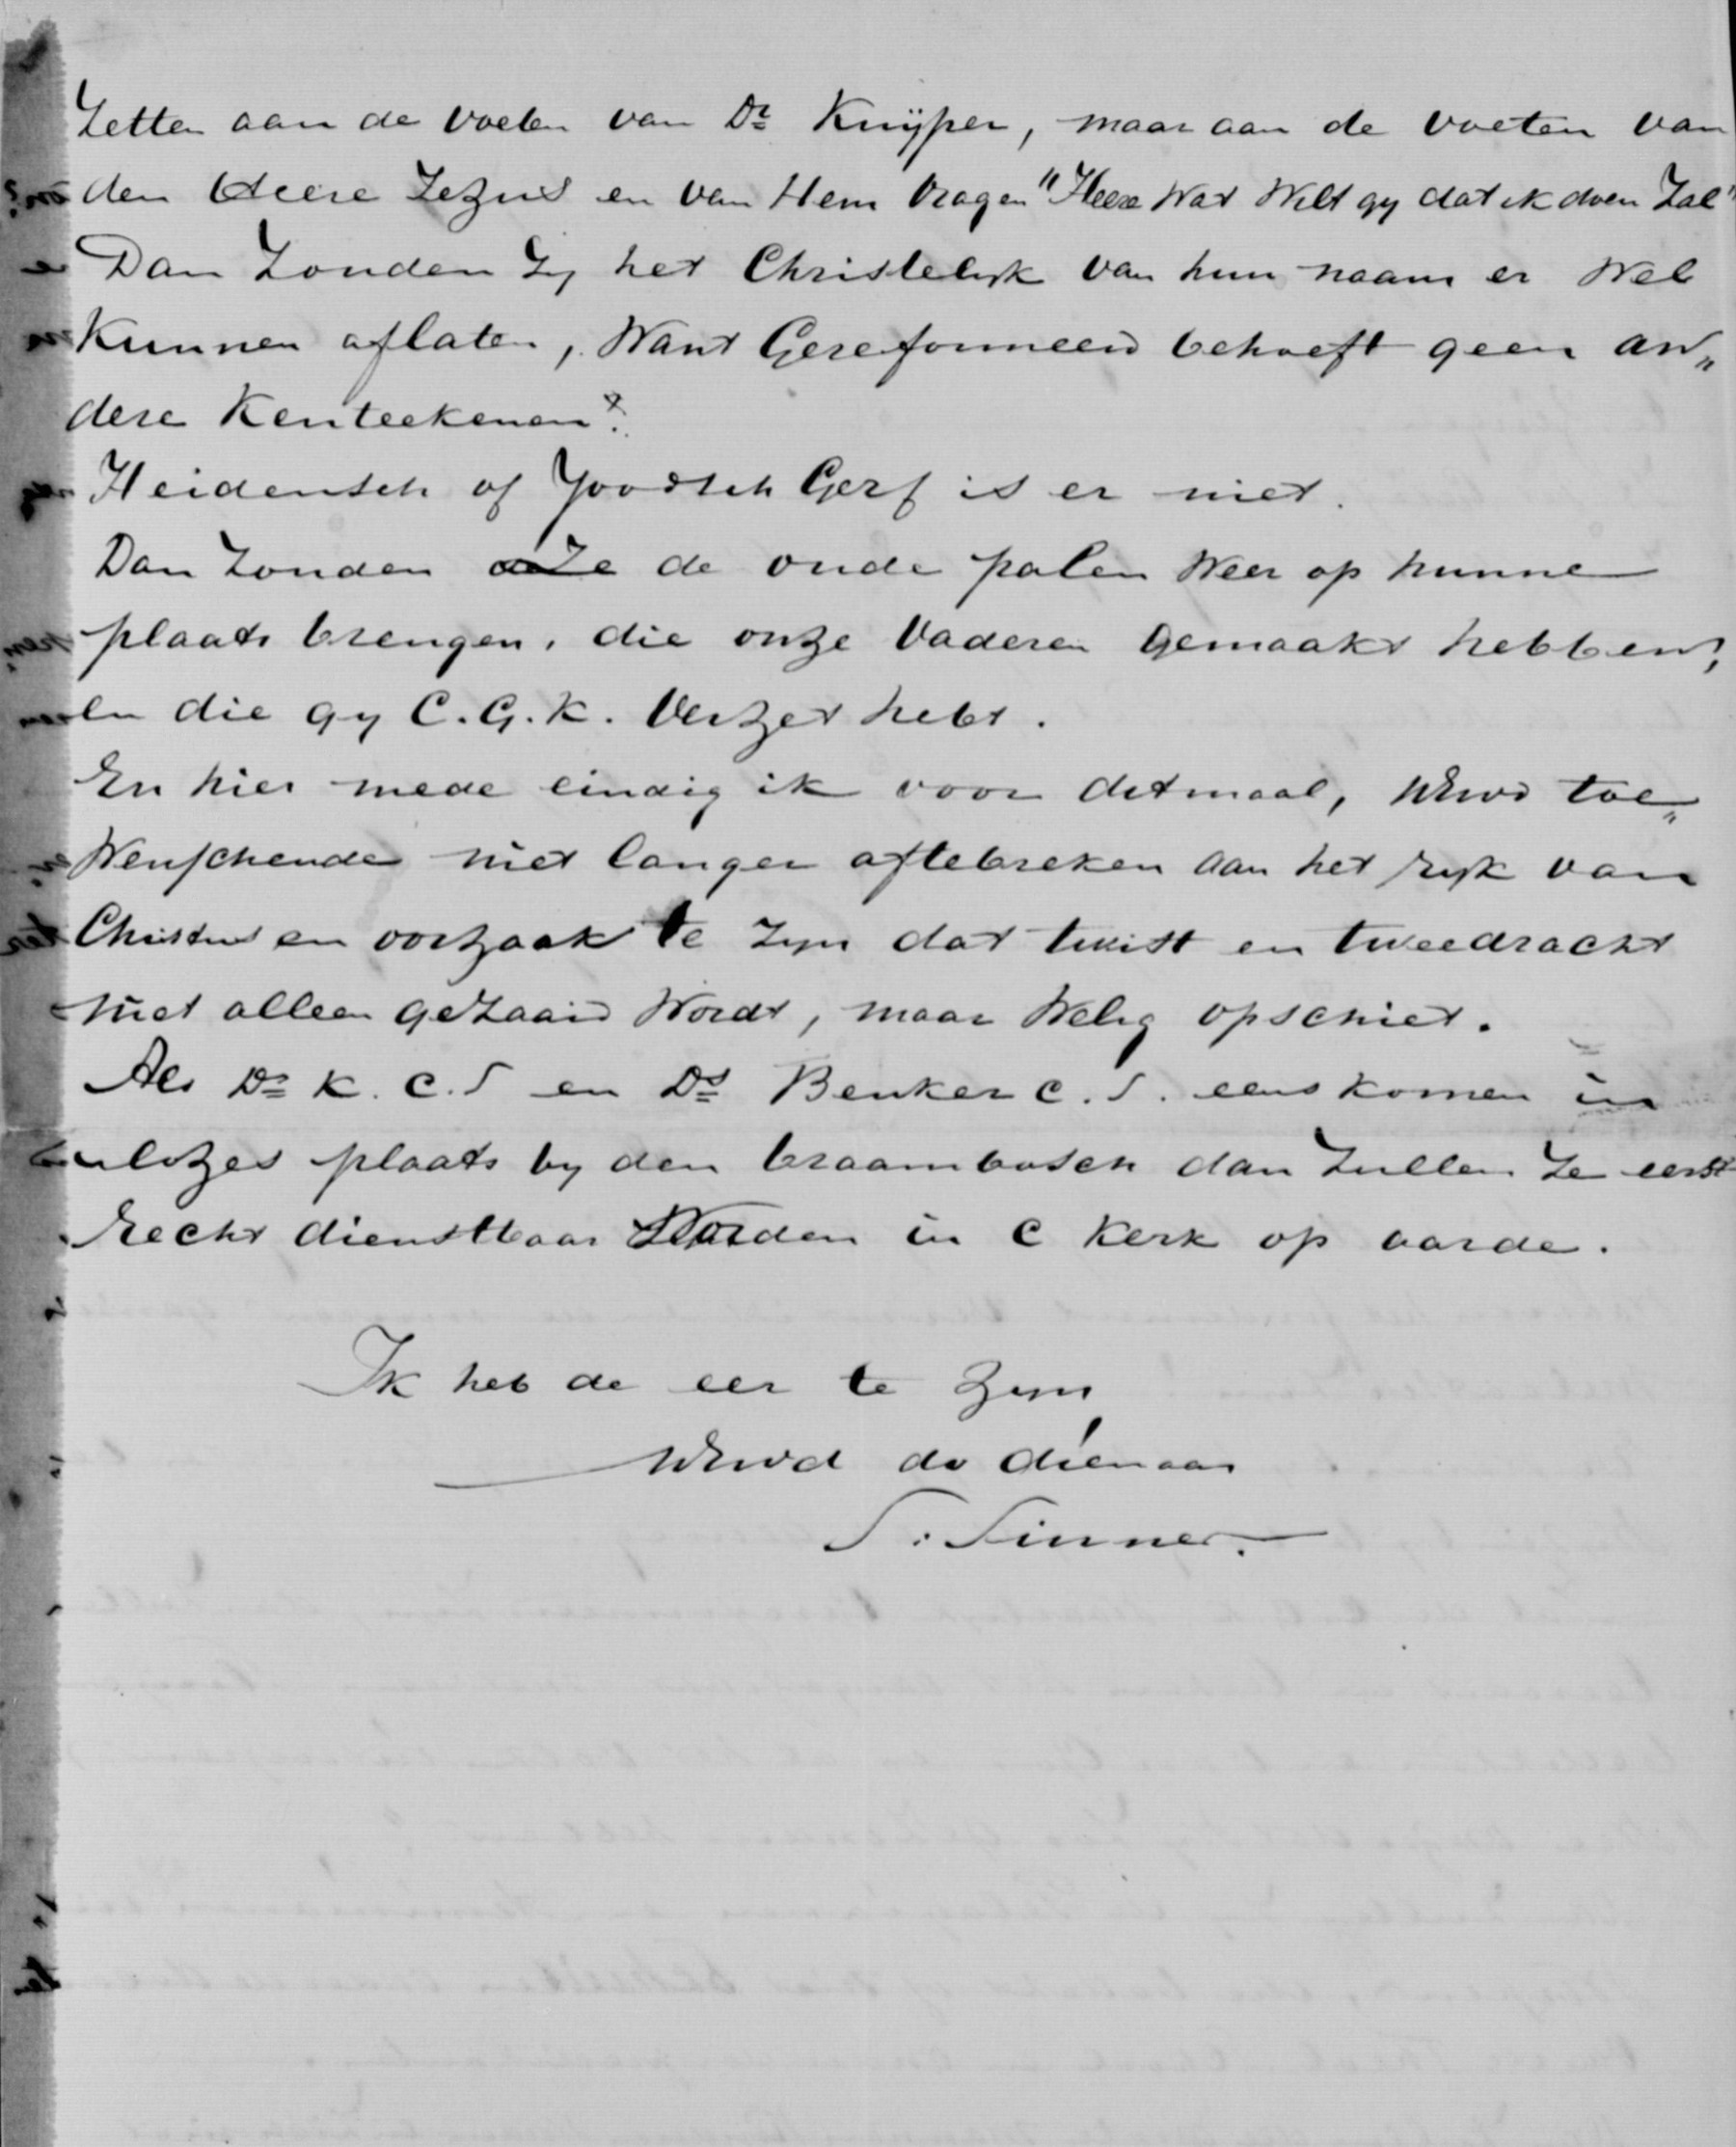 Zetten aan de voeten van Dr Kuijper, maar aan de voeten van
den Heere Jezus en van Hem vragen "Heere wat wilt gy dat ik doen zal"
Dan zouden zy het Christelyk van hun naam er wel
kunnen aflaten, want Gereformeerd behoeft geen an„
dere kenteekenen?
Heidensch of Joodsch Geref is er niet.
Dan zouden ze de oude palen weer op hunne
plaats brengen, die onze vaderen gemaakt hebben,
en die gy C.G.K. verzet hebt.
En hier mede eindig ik voor ditmaal, UEerwd toe„
wenschende niet langer aftebreken aan het ryk van
Christus en oorzaak te zyn dat twist en tweedracht
niet alleen gezaaid wordt, maar welig opschiet.
Als Dr K. c.s en Ds Beuker c.s. eens komen in
plaats by den braambosch dan zullen ze eerst
recht dienstbaar worden in C kerk op aarde.
Ik heb de eer te zyn
UEerwd dv dienaar
S. Sinner.